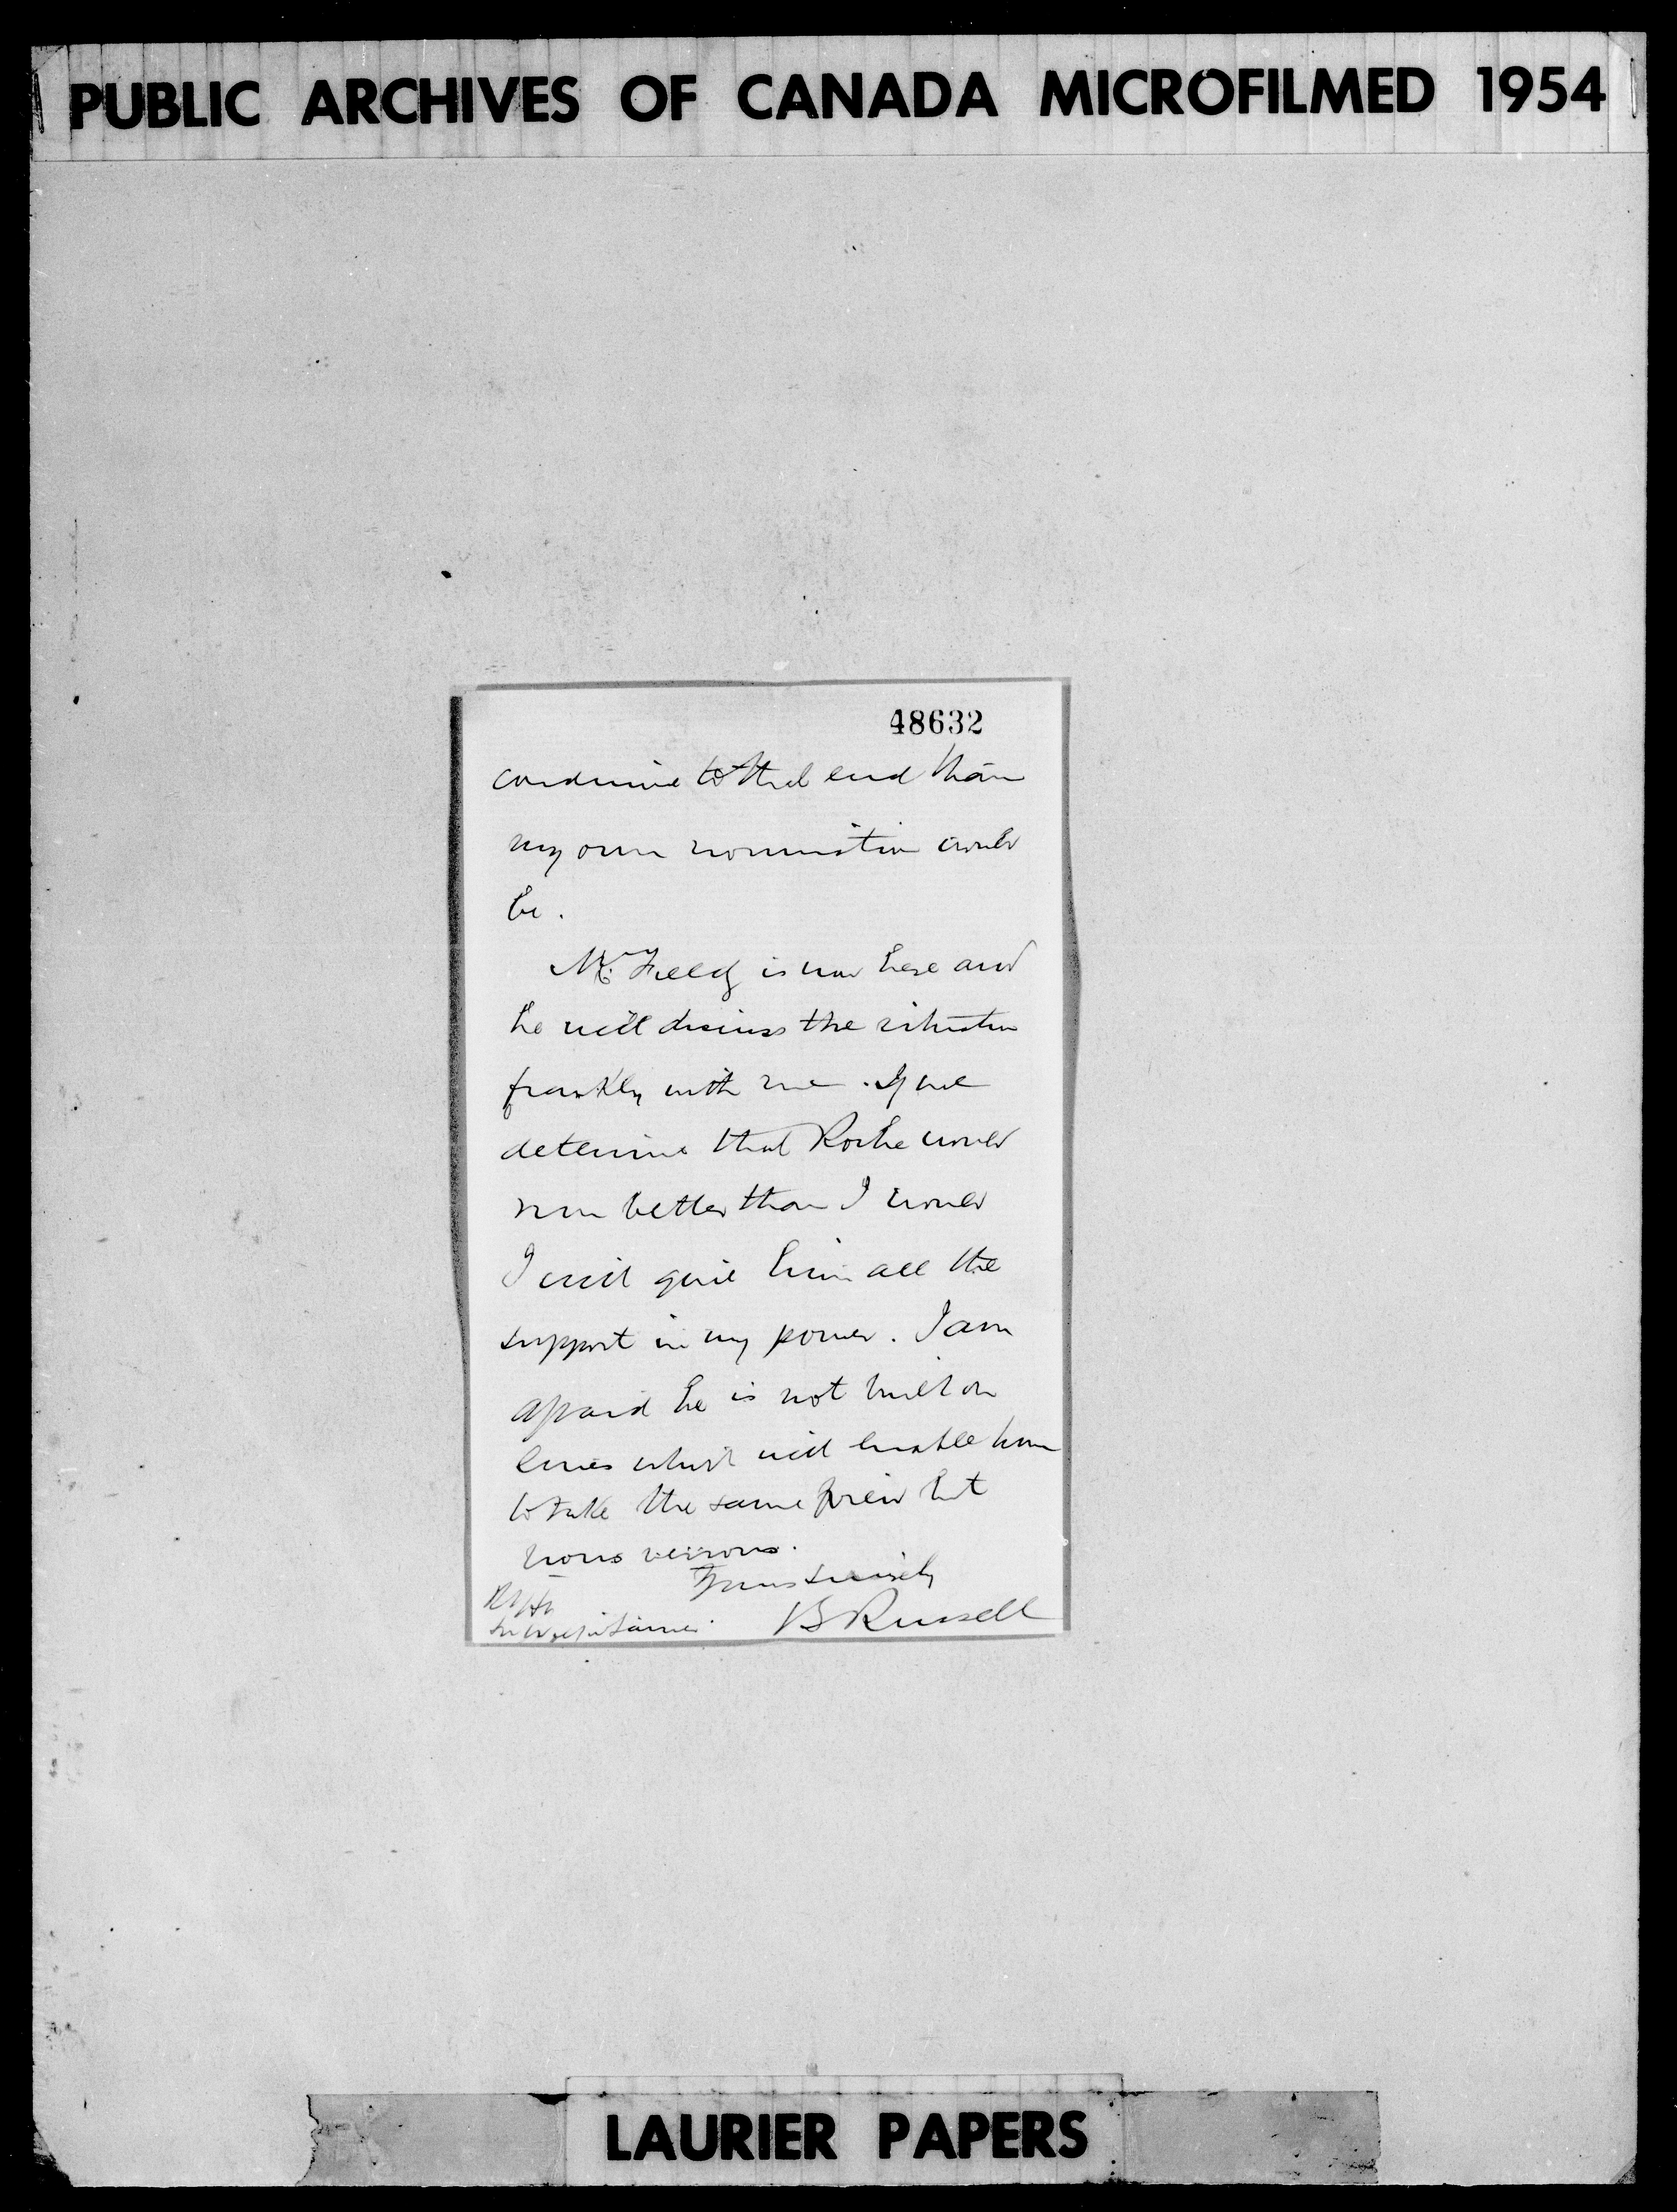 PUBLIC ARCHIVES OF CANADA MICROFILMED 1954
48632
conducive to that end than
my own nomination would
be.
Mr. Fielding is now here and
he will discuss the situation
frankly with me. If we
determine that Roche would
run better than I would
I will give him all the
support in my power. I am
afraid he is not built on
lines which will enable him
to take the same view but
nous verrons.
Yours sincerely
B Russell
Rt Hn
Sir Wilfrid Laurier
LAURIER PAPERS